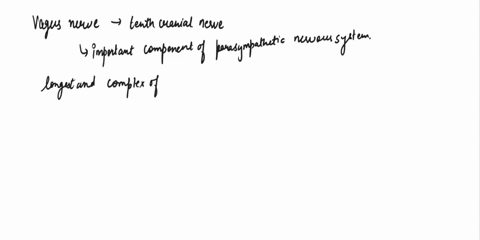 Vagus nerve → tenth cranial nerve
↳ important component of parasympathetic nervous system.
longest and complex of